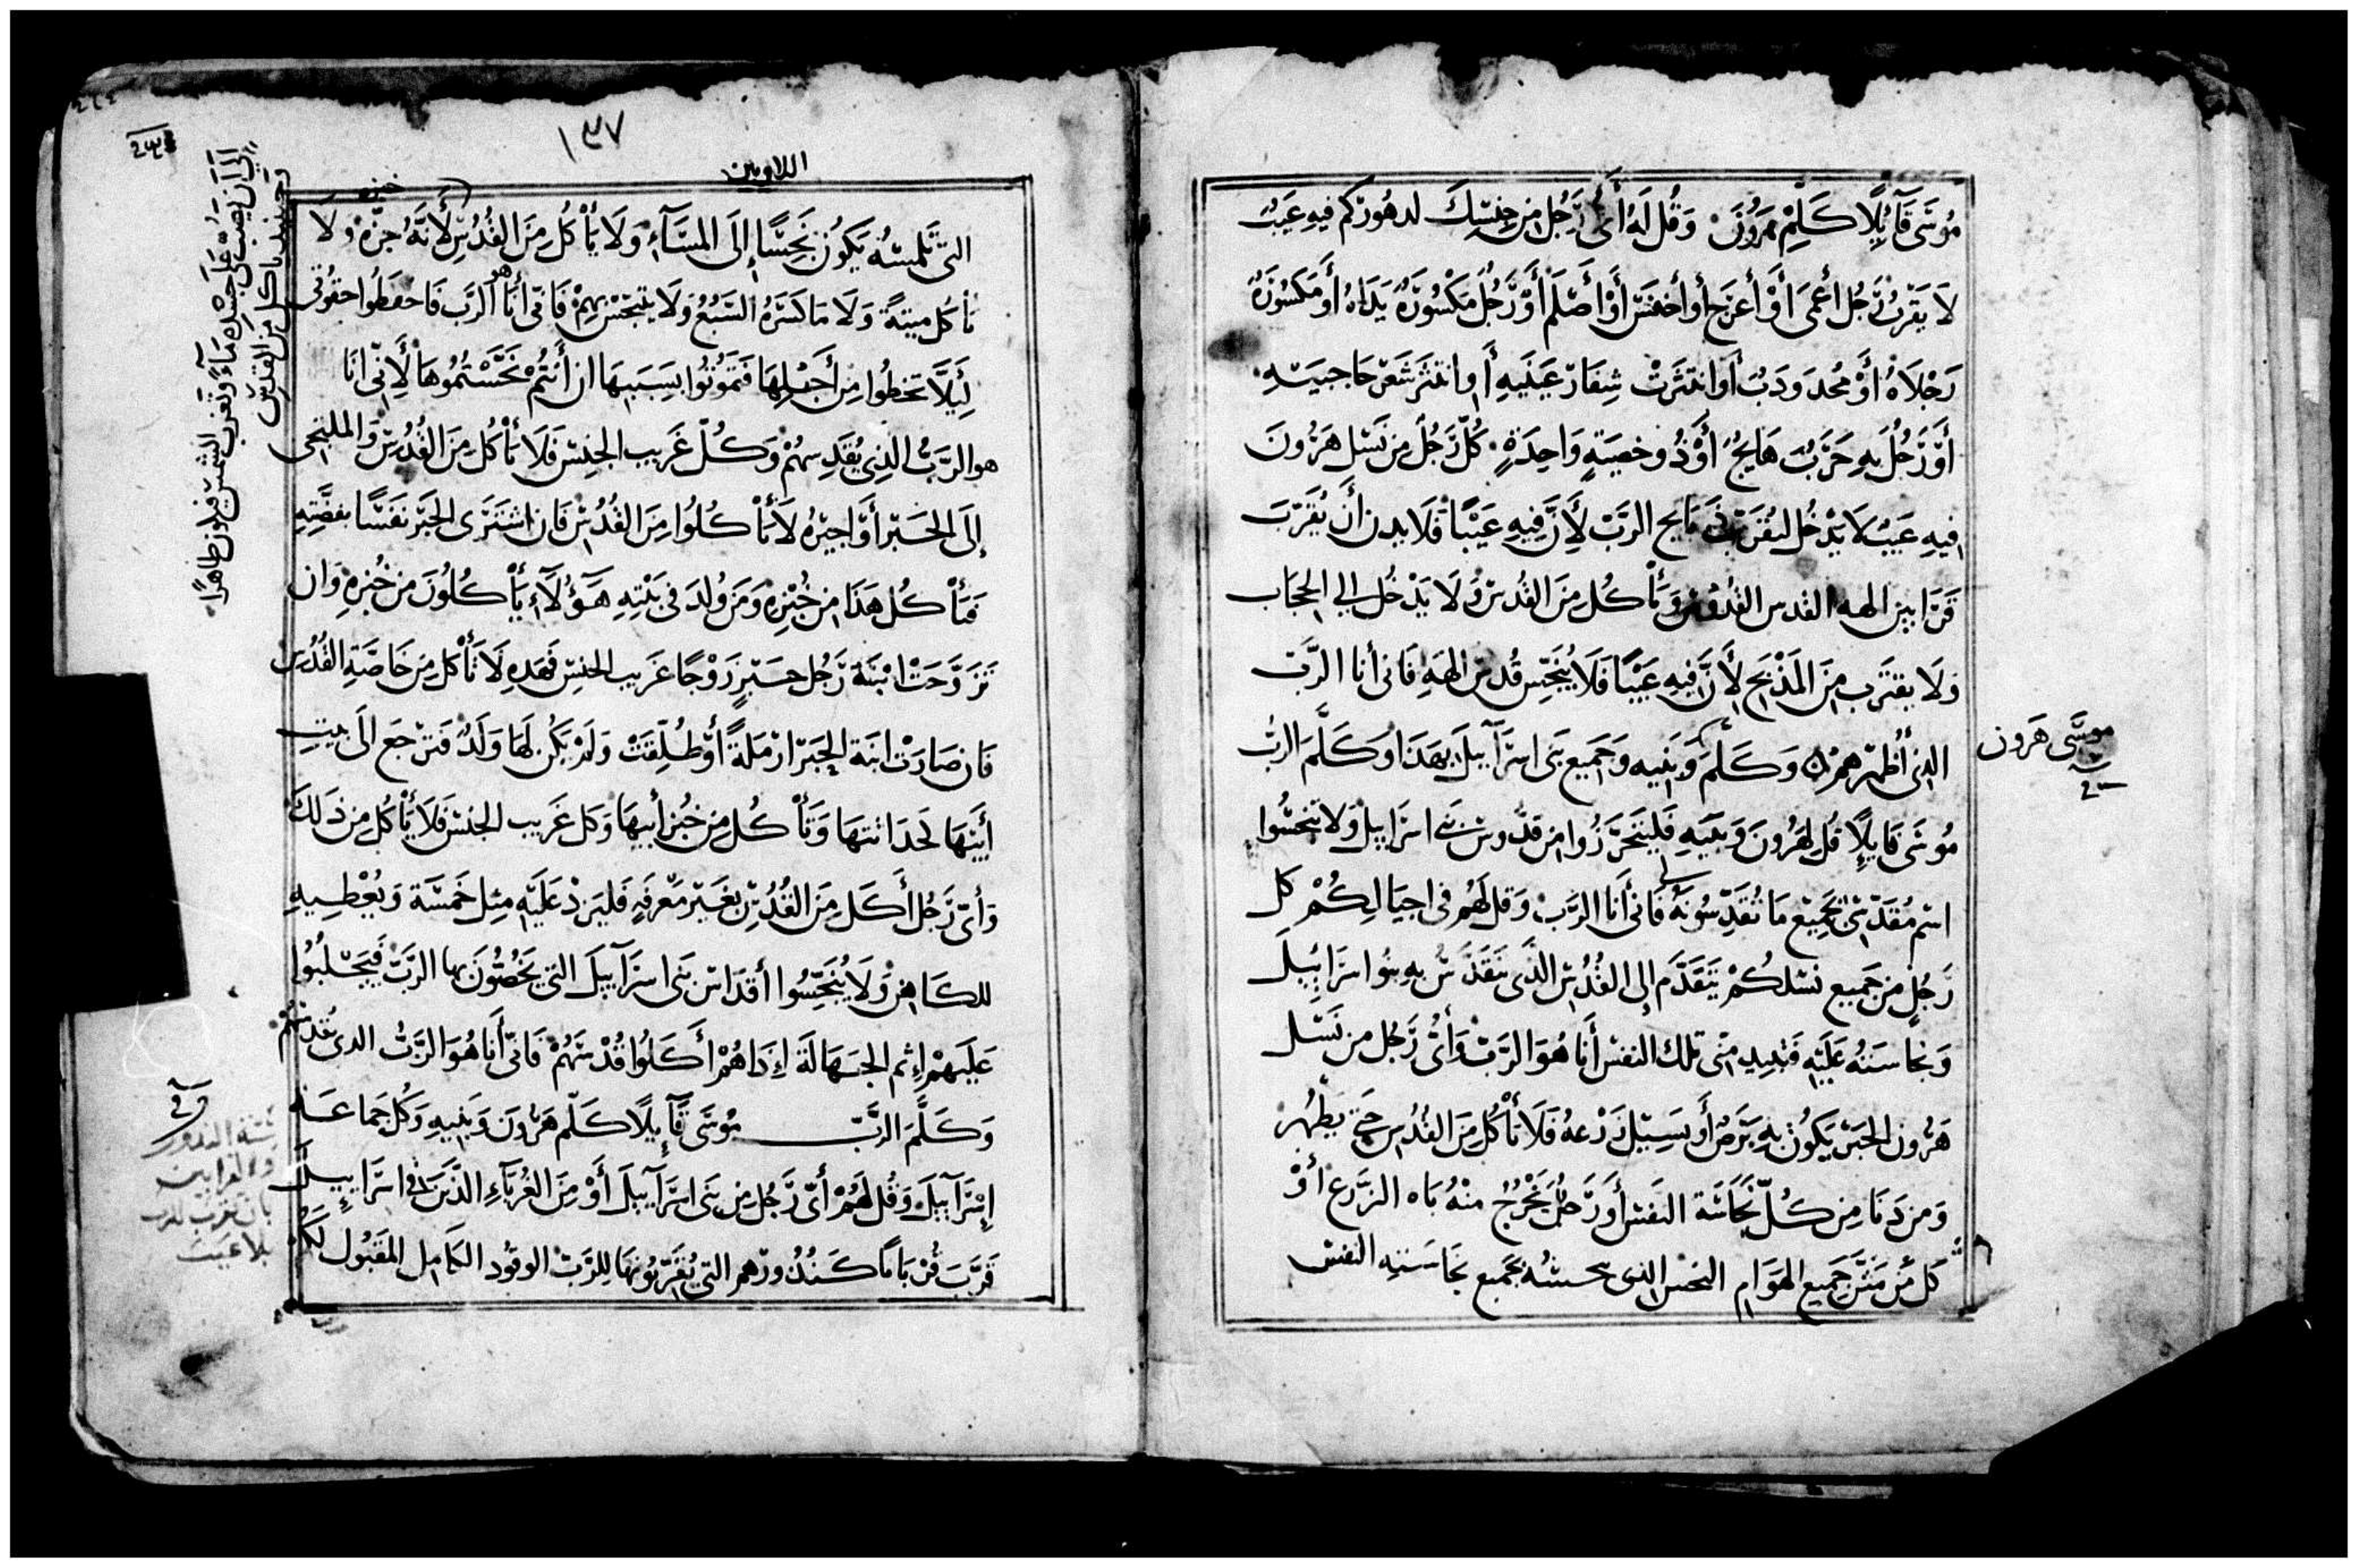 مُوسَى قَآيِلًا كَلِّمْ هَرُونَ وَقُل لَهُ أَيُّ رَجُل مِن جِنسِكَ لدهُورِكم فِيهِ عَيبٌ
لَا يَقرُب رَجُل أَعْمَى أَوْ أَعرَج أَو أَخفَس أَوْ أَصْلَم أَوْ رَجُل مَكسُورَة يَدَاهُ أَو مَكسُورَة
رِجْلَاهُ أَوْ مُحدَودَب أَو انتَثَرَتْ شِفَار عَيَنَيهِ أَو انتَثَر شَعْر حَاجبَيهِ
أَوْ رَجُل بِهِ جَرَبٌ هَايجٌ أَوْ ذُو خصيَةٍ وَاحِدَةٍ كُلّ رَجُل مِن نَسْل هَرُونَ
فِيهِ عَيبٌ لَا يَدْخُل ليُقَرّبَ ذبَايح الرَبّ لِأَنَّ فِيهِ عَيْبًا فَلَا يدن أَن يُقَرّبَ
قَرَابِين الهه القدس القُدُوس وَيَأْكُل مِنَ القُدس وَلَا يَدْخُل الي الحجَاب
وَلَا يقتَرب مِنَ المَذْبَح لِأَنَّ فِيهِ عَيْبًا فَلَا يُنَجِّس قُدس الهَهِ فَاني أَنا الرَبّ
الذِي أُطَهِّرهم وَكَلَّمَ وَبَنِيه وَجَمِيع بَني اسرَآييلَ بِهَذَا وَكَلَّمَ الرَبُّ
موسَى هَرون
مُوسَى قَايِلًا قُل لِهَرُونَ وَبَنِيهِ فَليَتَحَرَّزُوا مِن قدُّوس بَنِي اسرَاييل وَلَا يُنَجّسُوا
اسم مُقَدّسِي بجَمِيع مَا تُقَدِّسُونَهُ لي فَاني أَنَا الرَبّ وَقل لَهُم في اجيَالِكُمْ كل
رَجُلٍ مِن جَمِيع نَسْلكُمْ يَتَقَدَّم إِلى القُدْسِ الَّذِي يَتَقَدَّس بِهِ بنُوا اسرَاييل
وَنجَاسَتهُ عَلَيهِ فَتبِيد مِنّي تلك النفس أَنا هُوَ الرَبّ وَأَيُّ رَجُل من نَسْل
هَرُون الحَبر يَكُون بِهِ بَرَصٌ أَو يَسِيل زَرْعهُ فَلَا يَأْكُل مِنَ القُدْس حَتي يَطْهُر
وَمن دَنَا مِن كُلّ نَجَاسَة النَفس أَو رَجُلٌ يَخْرُجُ مِنْهُ بَاه الزَرع أَوْ
كل مَن مَسَّ جَمِيع الهَوَام النجس الذِي بجَمِيع نجَاسَتِهِ النَفس
١٣٧
اللاويين
التِي تَلمِسُهُ يَكُون نَجِسًا إِلَى المسَآء وَلَا يَأْكُل مِنَ القُدْسِ لِأَنَّهُ خبزه وَلَا
يَأكُل مِيتَةً وَلَا مَا كَسَرَهُ السَبُعُ وَلَا يَتَنَجَّس بِهِمْ فَانّي أَنَا هو الرَب فَاحفَظُوا حقُوقي
لِئَلَّا تخطُوا مِن أَجْلِهَا فَتَمُوتُوا بسَبَبِهَا ان أَنْتُمْ نَجَّسْتُمُوهَا لِأَنِّي انَا
هو الرَبُّ الذِي يُقَدِسهُمْ وَكُلّ غَرِيب الجِنس فَلَا يَأكُل مِنَ القُدسِ وَالملتجى
إِلَى الحَبْر أَو اجِيرُه لَا يَأْكُلُوا مِنَ القُدْس فَان اشتَرَى الحَبْر نَفَسًا بفضَّتِهِ
فيَأْكُل هَذَا مِن خُبْزِهِ وَمَن وُلدَ فِي بَيْتِهِ هَؤُلَآء يَأْكُلُونَ مِن خُبزِهِ وَان
تَزَوَّجَتْ ابْنَة رَجُل حَبْرٍ زَوْجًا غَرِيب الجِنس فَهَذِهِ لَا تَأْكُل مِن خَاصَّةِ القُدْس
فَان صَارَتْ ابنَة الحَبْر ارْمَلةً أَوْ طُلِّقَتْ وَلَمْ يَكُن لَهَا وَلَدٌ فَتَرجَع الَى بيتِ
أَبِيْهَا لحَدَاثتهَا وَتَأْكُل مِن خُبْز أَبِيهَا وَكل غَرِيب الجِنس فَلَا يَأْكُل مِن ذَلكَ
وَأَيّ رَجُل أَكَل مِنَ القُدْس بِغَيْر مَعرفَةٍ فَليَزدْ عَلَيْهِ مِثل خَمْسَة وَيُعْطِيهِ
للكَاهِن وَلَا يُنَجِّسُوا أَقدَاس بَني اسرَآييلَ التِي يَخُصُّونَ بها الرَبّ فَيَجْلبُوا
عَلَيهمْ إِثم الجَهَالَة إِذَا هُمْ أَكَلُوا قُدْسهُمْ فَانّي أَنا هُوَ الرَبُّ الذي يُقدسهُمْ
وَكَلَّمَ الرَبّ مُوسَى قَآيِلًا كَلّم هَرُون وَبَنِيهِ وَكُل جَمَاعَة
إِسْرَآييلَ وَقُل لَهُمْ أَيّ رَجُل مِن بَني اسرَآييلَ أَوْ مِنَ الغُرَبَآءِ الَّذِينَ في اسرَاييلَ
قَرَّبَ قُربَانًا كَنُذُورهم التِي يُقَرّبُونَهَا لِلرَبّ الوقُود الكَامِل المقبُول لَكُم
إِلَى أن يصب عَلَى جَسَدِهِ مَاءً وتغرب الشمس فيكون طاهرًا
وحينيذ ياكل من القدس
سُنّة النذور
والقرابين
بان تقرب للرب
بلا عيب